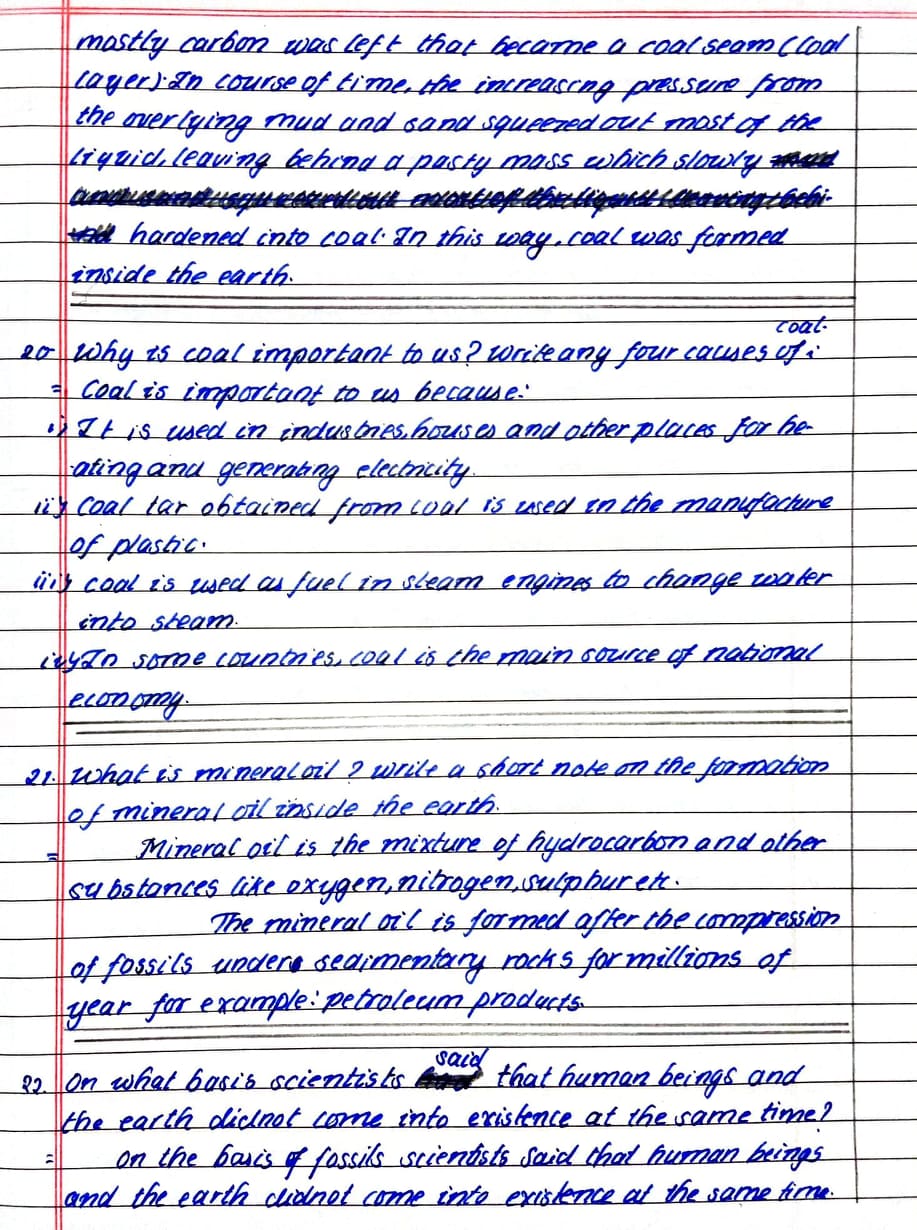 mostly carbon was left that became a coal seam (Coal
layer). In course of time, the increasing pressure from
the overlying mud and sand squeezed out most of the
liquid, leaving behind a pasty mass which slowly
hardened into coal. In this way, coal was formed
inside the earth.
coal.
20 Why is coal important to us? Write any four causes of:
= Coal is important to us because:
i) It is used in industries, houses and other places for he-
ating and generating electricity.
ii) Coal tar obtained from coal is used in the manufacture
of plastic.
iii) coal is used as fuel in steam engines to change water
into steam.
iv) In some countries, coal is the main source of national
economy.
21. What is mineral oil? Write a short note on the formation
of mineral oil inside the earth.
= Mineral oil is the mixture of hydrocarbon and other
substances like oxygen, nitrogen, sulphur etc.
The mineral oil is formed after the compression
of fossils under sedimentary rocks for millions of
year for example: petroleum products.
said
22. On what basis scientists that human beings and
the earth didnot come into existence at the same time?
= On the basis of fossils scientists said that human beings
and the earth didnot come into existence at the same time.